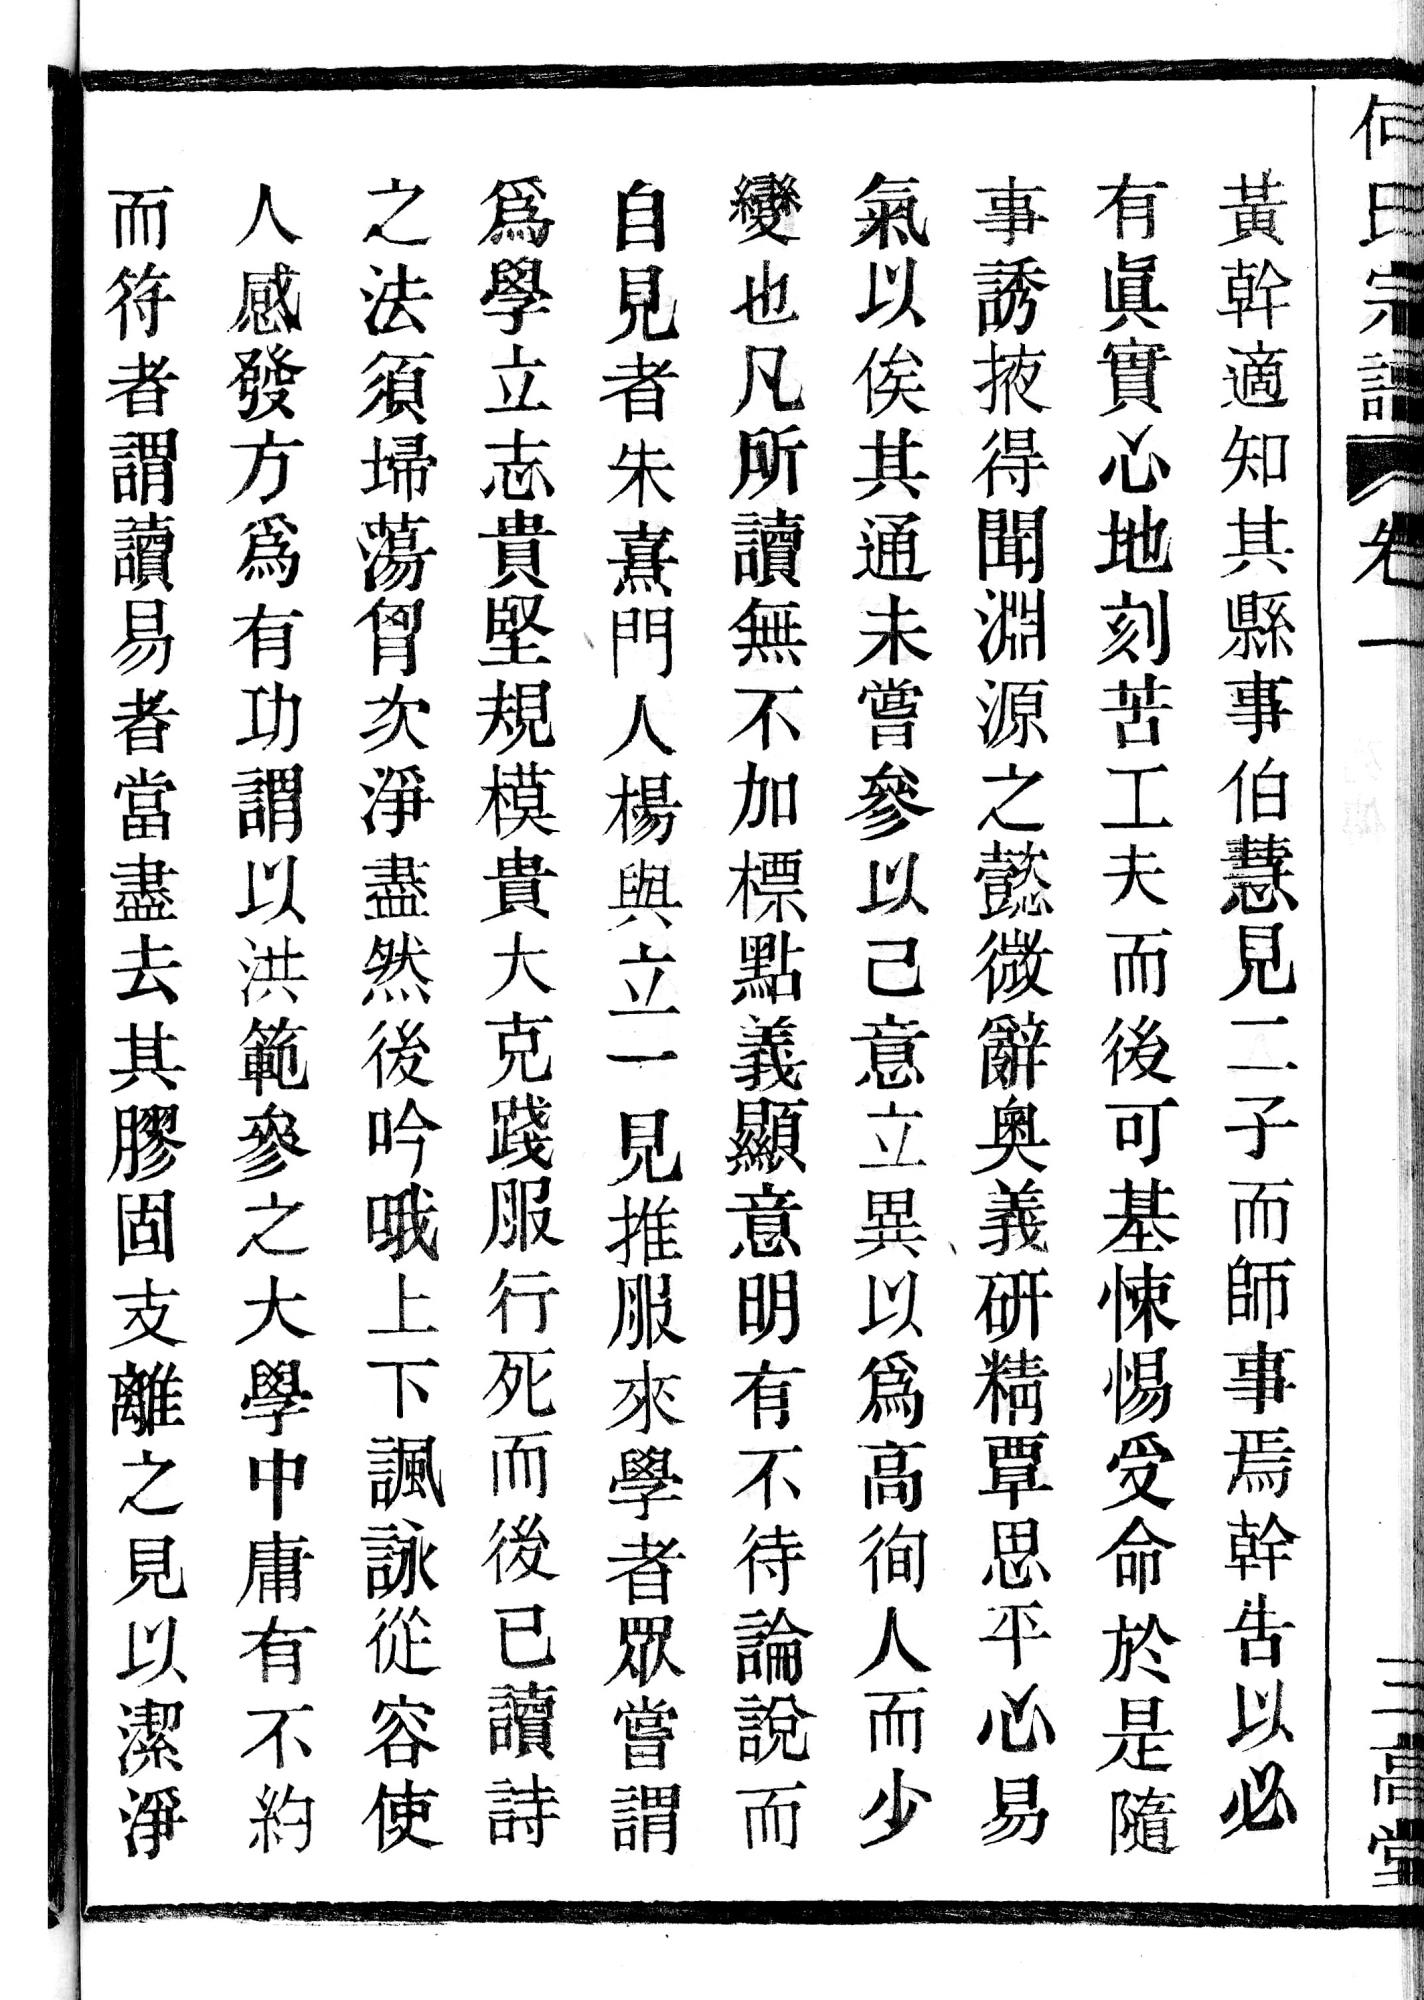 何氏宗譜 卷一 三高堂
黃幹適知其縣事伯慧見二子而師事焉幹告以必
有眞實心地刻苦工夫而後可基悚惕受命於是隨
事誘掖得聞淵源之懿微辭奧義硏精覃思平心易
氣以俟其通未嘗參以己意立異以爲高徇人而少
變也凡所讀無不加標點義顯意明有不待論說而
自見者朱熹門人楊與立一見推服來學者眾嘗謂
爲學立志貴堅規模貴大克踐服行死而後已讀詩
之法須埽蕩胷次淨盡然後吟哦上下諷詠從容使
人感發方爲有功謂以洪範參之大學中庸有不約
而符者謂讀易者當盡去其膠固支離之見以潔淨